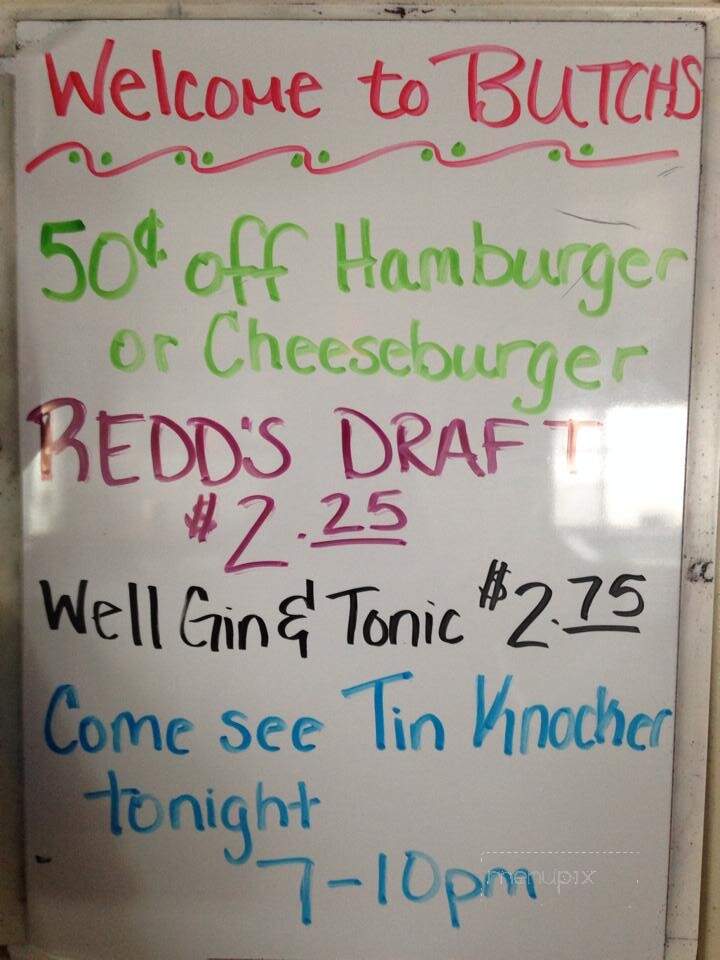 Welcome to BUTCHS
50¢ off Hamburger
or Cheeseburger
REDD'S DRAFT
$2.25
Well Gin & Tonic $2.75
Come see Tin Knocker
tonight
7-10pm
menupix